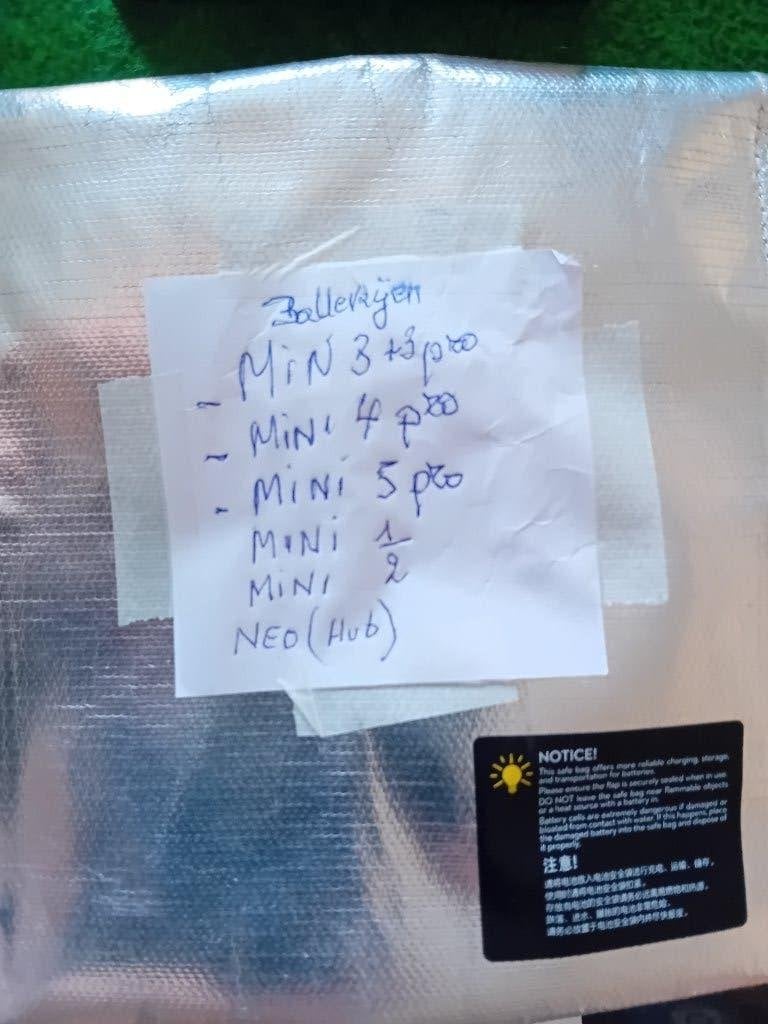 Batterijen
- MiNi 3 + 3 pro
- MiNi 4 pro
- MiNi 5 pro
MiNi 1
MiNi 2
NEO (Hub)
NOTICE!
This safe bag offers more reliable charging, storage,
and transportation for batteries.
Please ensure the flap is securely sealed when in use.
DO NOT leave the safe bag near flammable objects
or a heat source with a battery in.
Battery cells are extremely dangerous if damaged or
bloated from contact with water. If this happens, place
the damaged battery into the safe bag and dispose of
it properly.
注意!
请将电池放入电池安全袋进行充电、运输、储存。
使用时请将电池安全袋扣紧。
存放有电池的安全袋请务必远离易燃物和热源。
跌落、进水、臌胀的电池非常危险,
请务必放置于电池安全袋内并尽快报废。